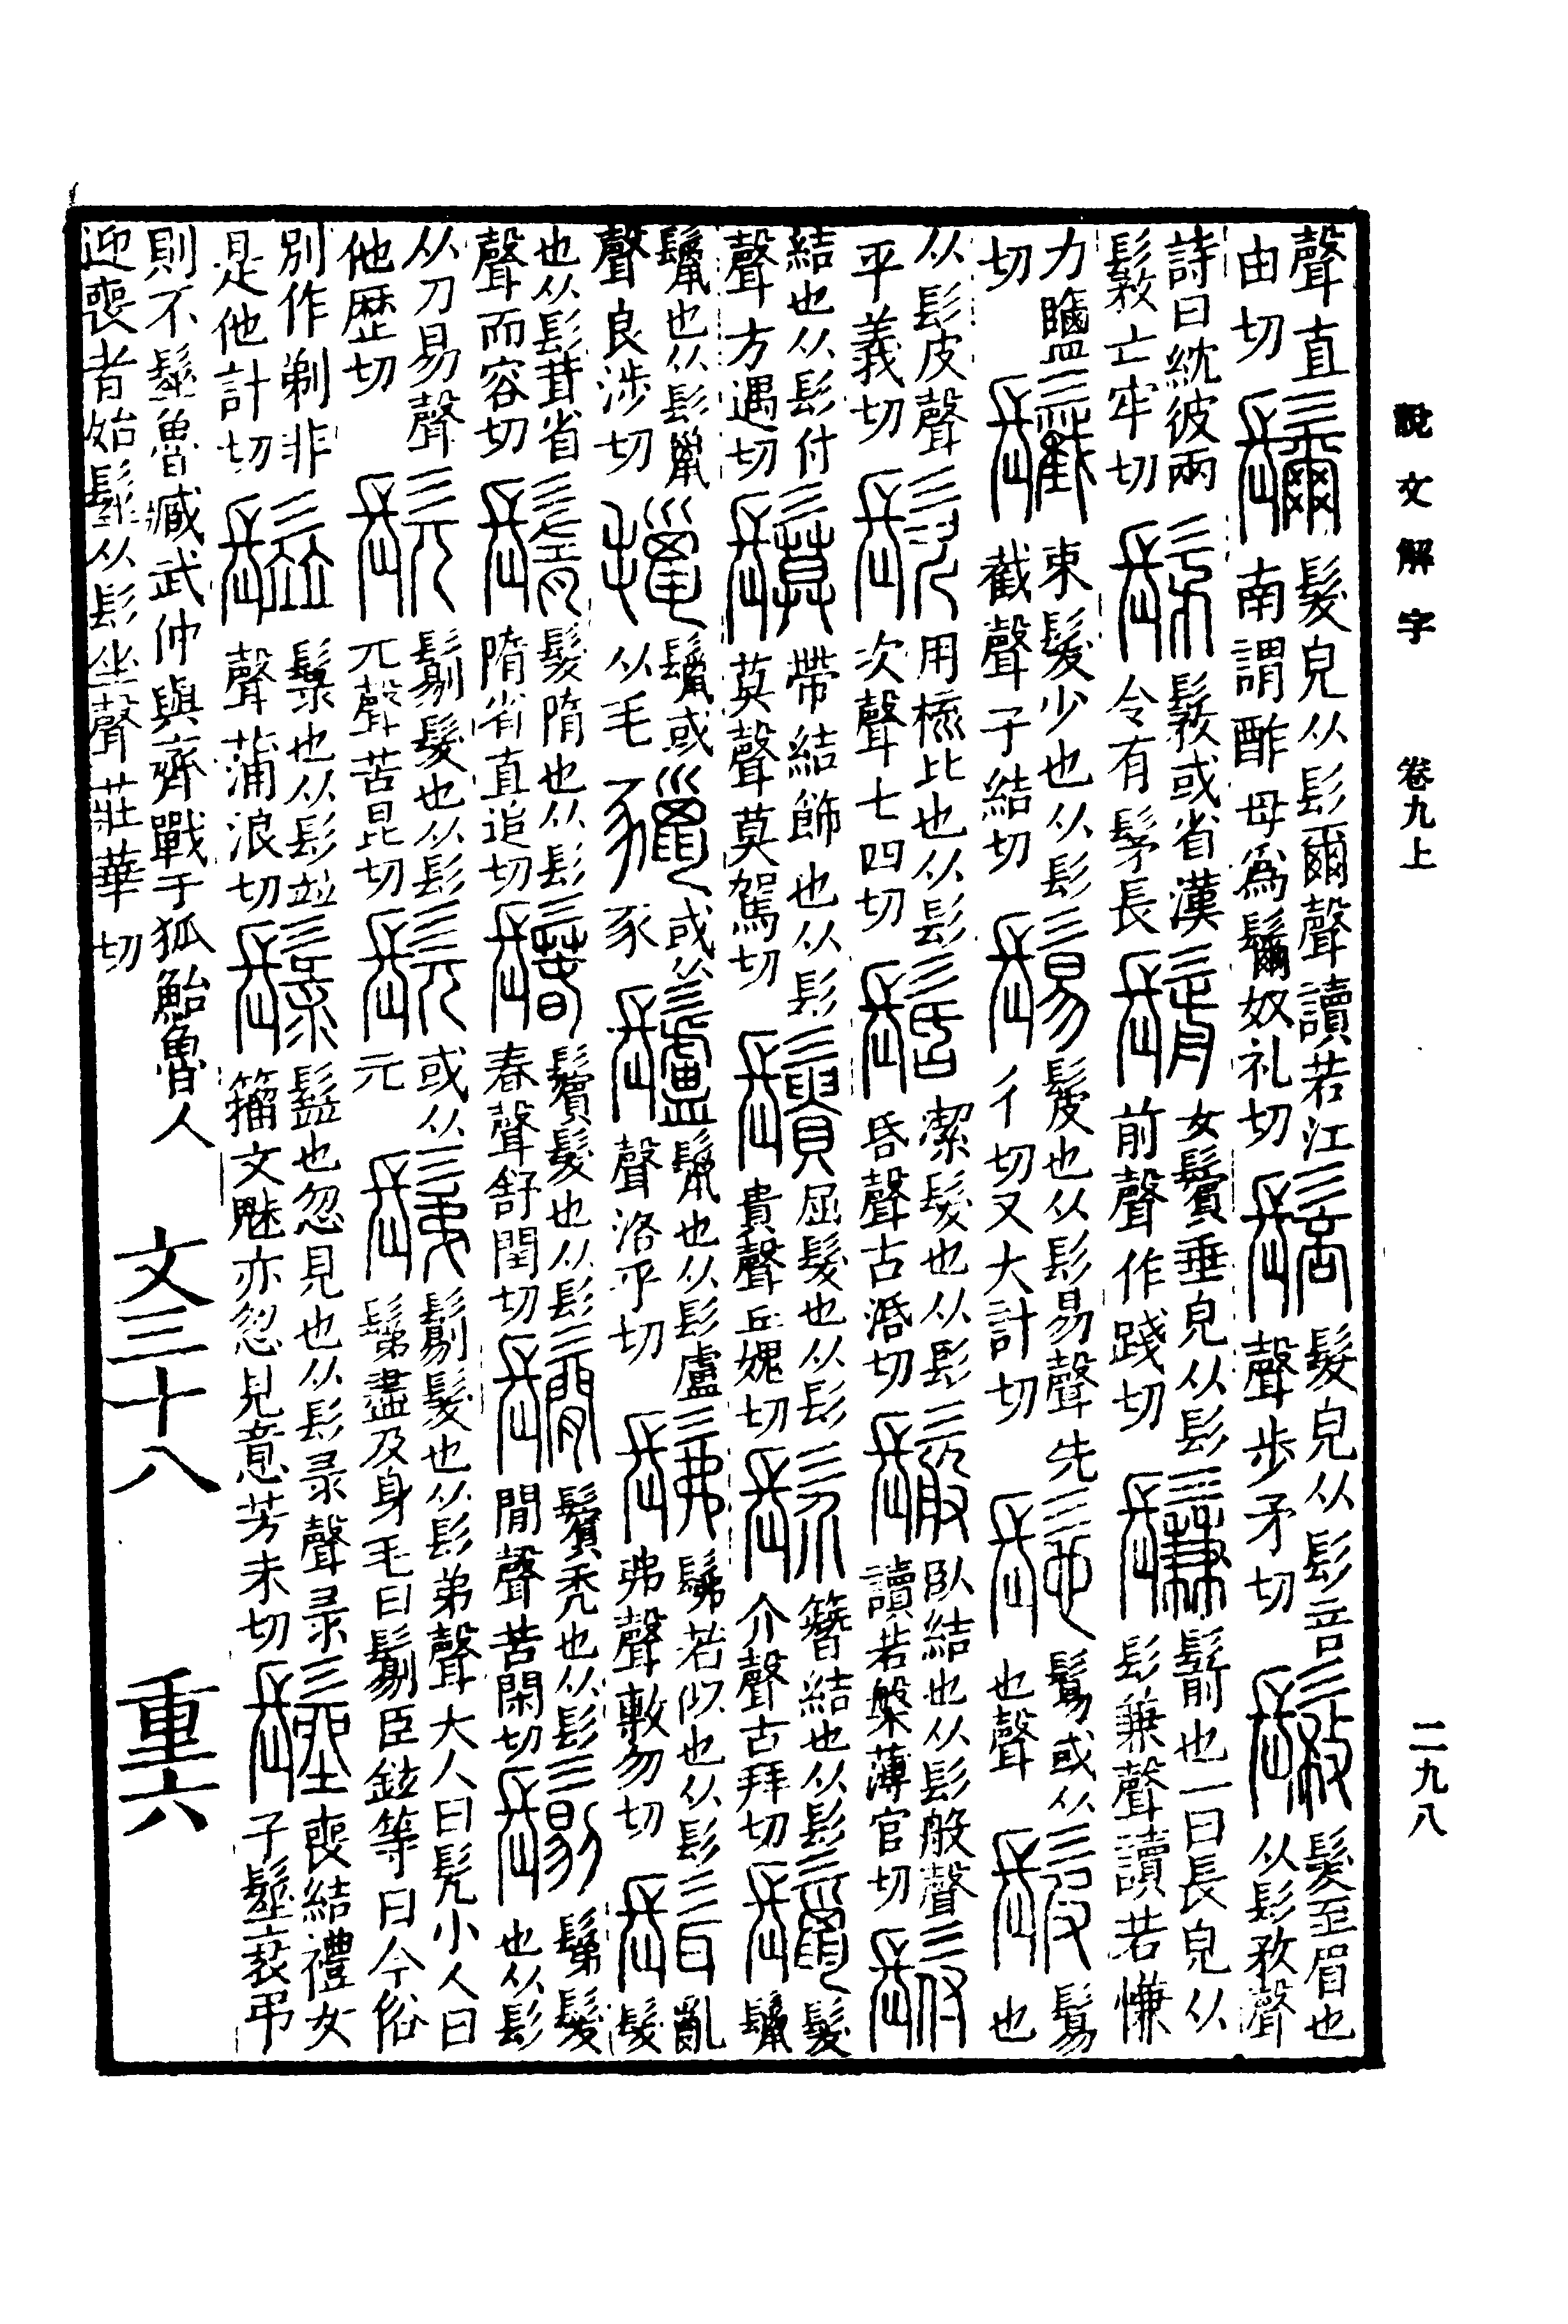 說文解字 卷九上 二九八
聲直由切 𩯨 髮皃从髟爾聲讀若江南謂酢母為𩯨奴礼切 䯽 髮皃从髟咅聲步矛切 𩭾 髮至眉也从髟敄聲
詩曰紞彼兩𩭾亡牢切 髳 𩭾或省漢令有髳長 鬋 女鬢垂皃从髟前聲作踐切 鬑 鬋也一曰長皃从髟兼聲讀若慊
力鹽切 䰏 束髮少也从髟截聲子結切 鬄 髲也从髟易聲先彳切又大計切 髢 鬄或从也聲 髲 鬄也
从髟皮聲平義切 䯸 用梳比也从髟次聲七四切 髺 潔髮也从髟昏聲古活切 䰉 臥結也从髟般聲讀若槃薄官切 䯻
結也从髟付聲方遇切 鬕 帶結飾也从髟莫聲莫駕切 䰎 屈髮也从髟貴聲丘媿切 䯰 簪結也从髟介聲古拜切 鬣 髮鬣
鬣也从髟巤聲良涉切 鬣或从毛 或从豕 䰕 鬣也从髟盧聲洛乎切 髴 髴若似也从髟弗聲敷勿切 髶 亂髮
也从髟茸省聲而容切 鬌 髮隋也从髟隋省直追切 鬊 鬢髮也从髟春聲舒閏切 鬜 鬢禿也从髟閒聲苦閑切 𩮜 鬀髮也从髟
从刀易聲他歷切 髡 𩮜髮也从髟兀聲苦昆切 髨 或从元 鬀 𩮜髮也从髟弟聲大人曰髡小人曰鬀盡及身毛曰𩮜臣鉉等曰今俗
別作剃非是他計切 䰃 也从髟竝聲蒲浪切 䰃也忽見也从髟彔聲彔籀文魅亦忽見意芳未切 髽 喪結禮女子髽衰弔
則不髽魯臧武仲與齊戰于狐鮐魯人迎喪者始髽从髟坐聲莊華切 文三十八 重六